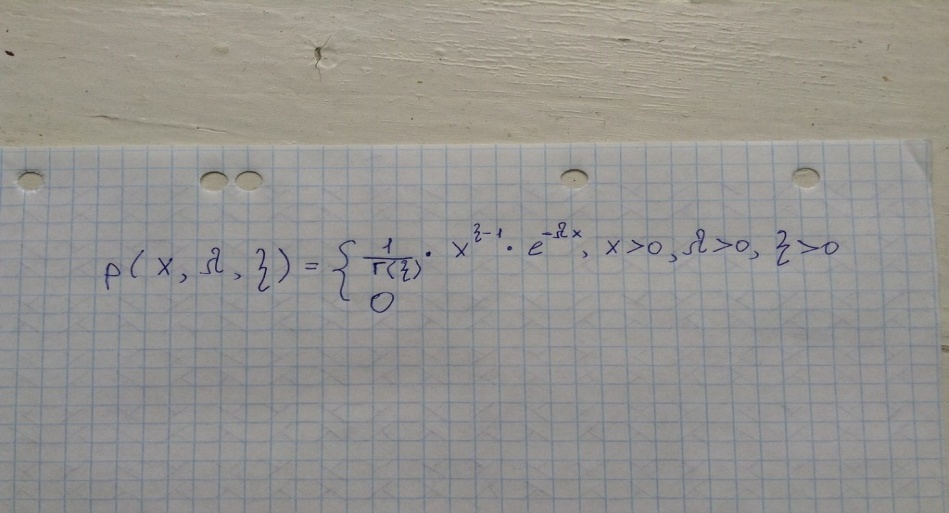 p(x, Ω, ξ) = { 1/Γ(ξ) · x^{ξ-1} · e^{-Ωx}, x>0, Ω>0, ξ>0
0